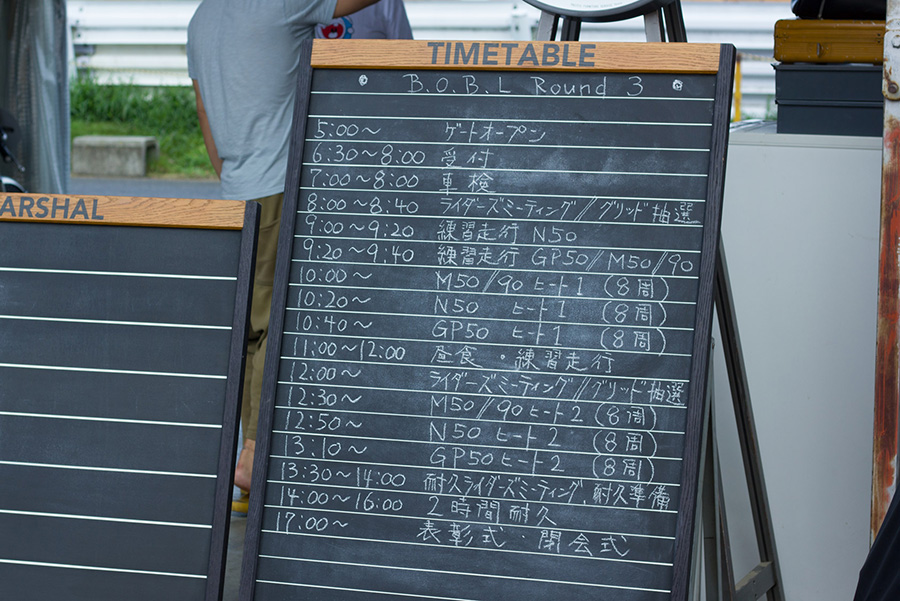 TIMETABLE
B.O.B.L Round 3
5:00～ ゲートオープン
6:30～8:00 受付
7:00～8:00 車検
8:00～8:40 ライダーズミーティング//グリッド抽選
9:00～9:20 練習走行 N50
9:20～9:40 練習走行 GP50//M50/90
10:00～ M50/90 ヒート1 (8周)
10:20～ N50 ヒート1 (8周)
10:40～ GP50 ヒート1 (8周)
11:00～12:00 昼食・練習走行
12:00～ ライダーズミーティング//グリッド抽選
12:30～ M50//90 ヒート2 (8周)
12:50～ N50 ヒート2 (8周)
13:10～ GP50 ヒート2 (8周)
13:30～14:00 耐久ライダーズミーティング、耐久準備
14:00～16:00 2時間耐久
17:00～ 表彰式・閉会式
ARSHAL